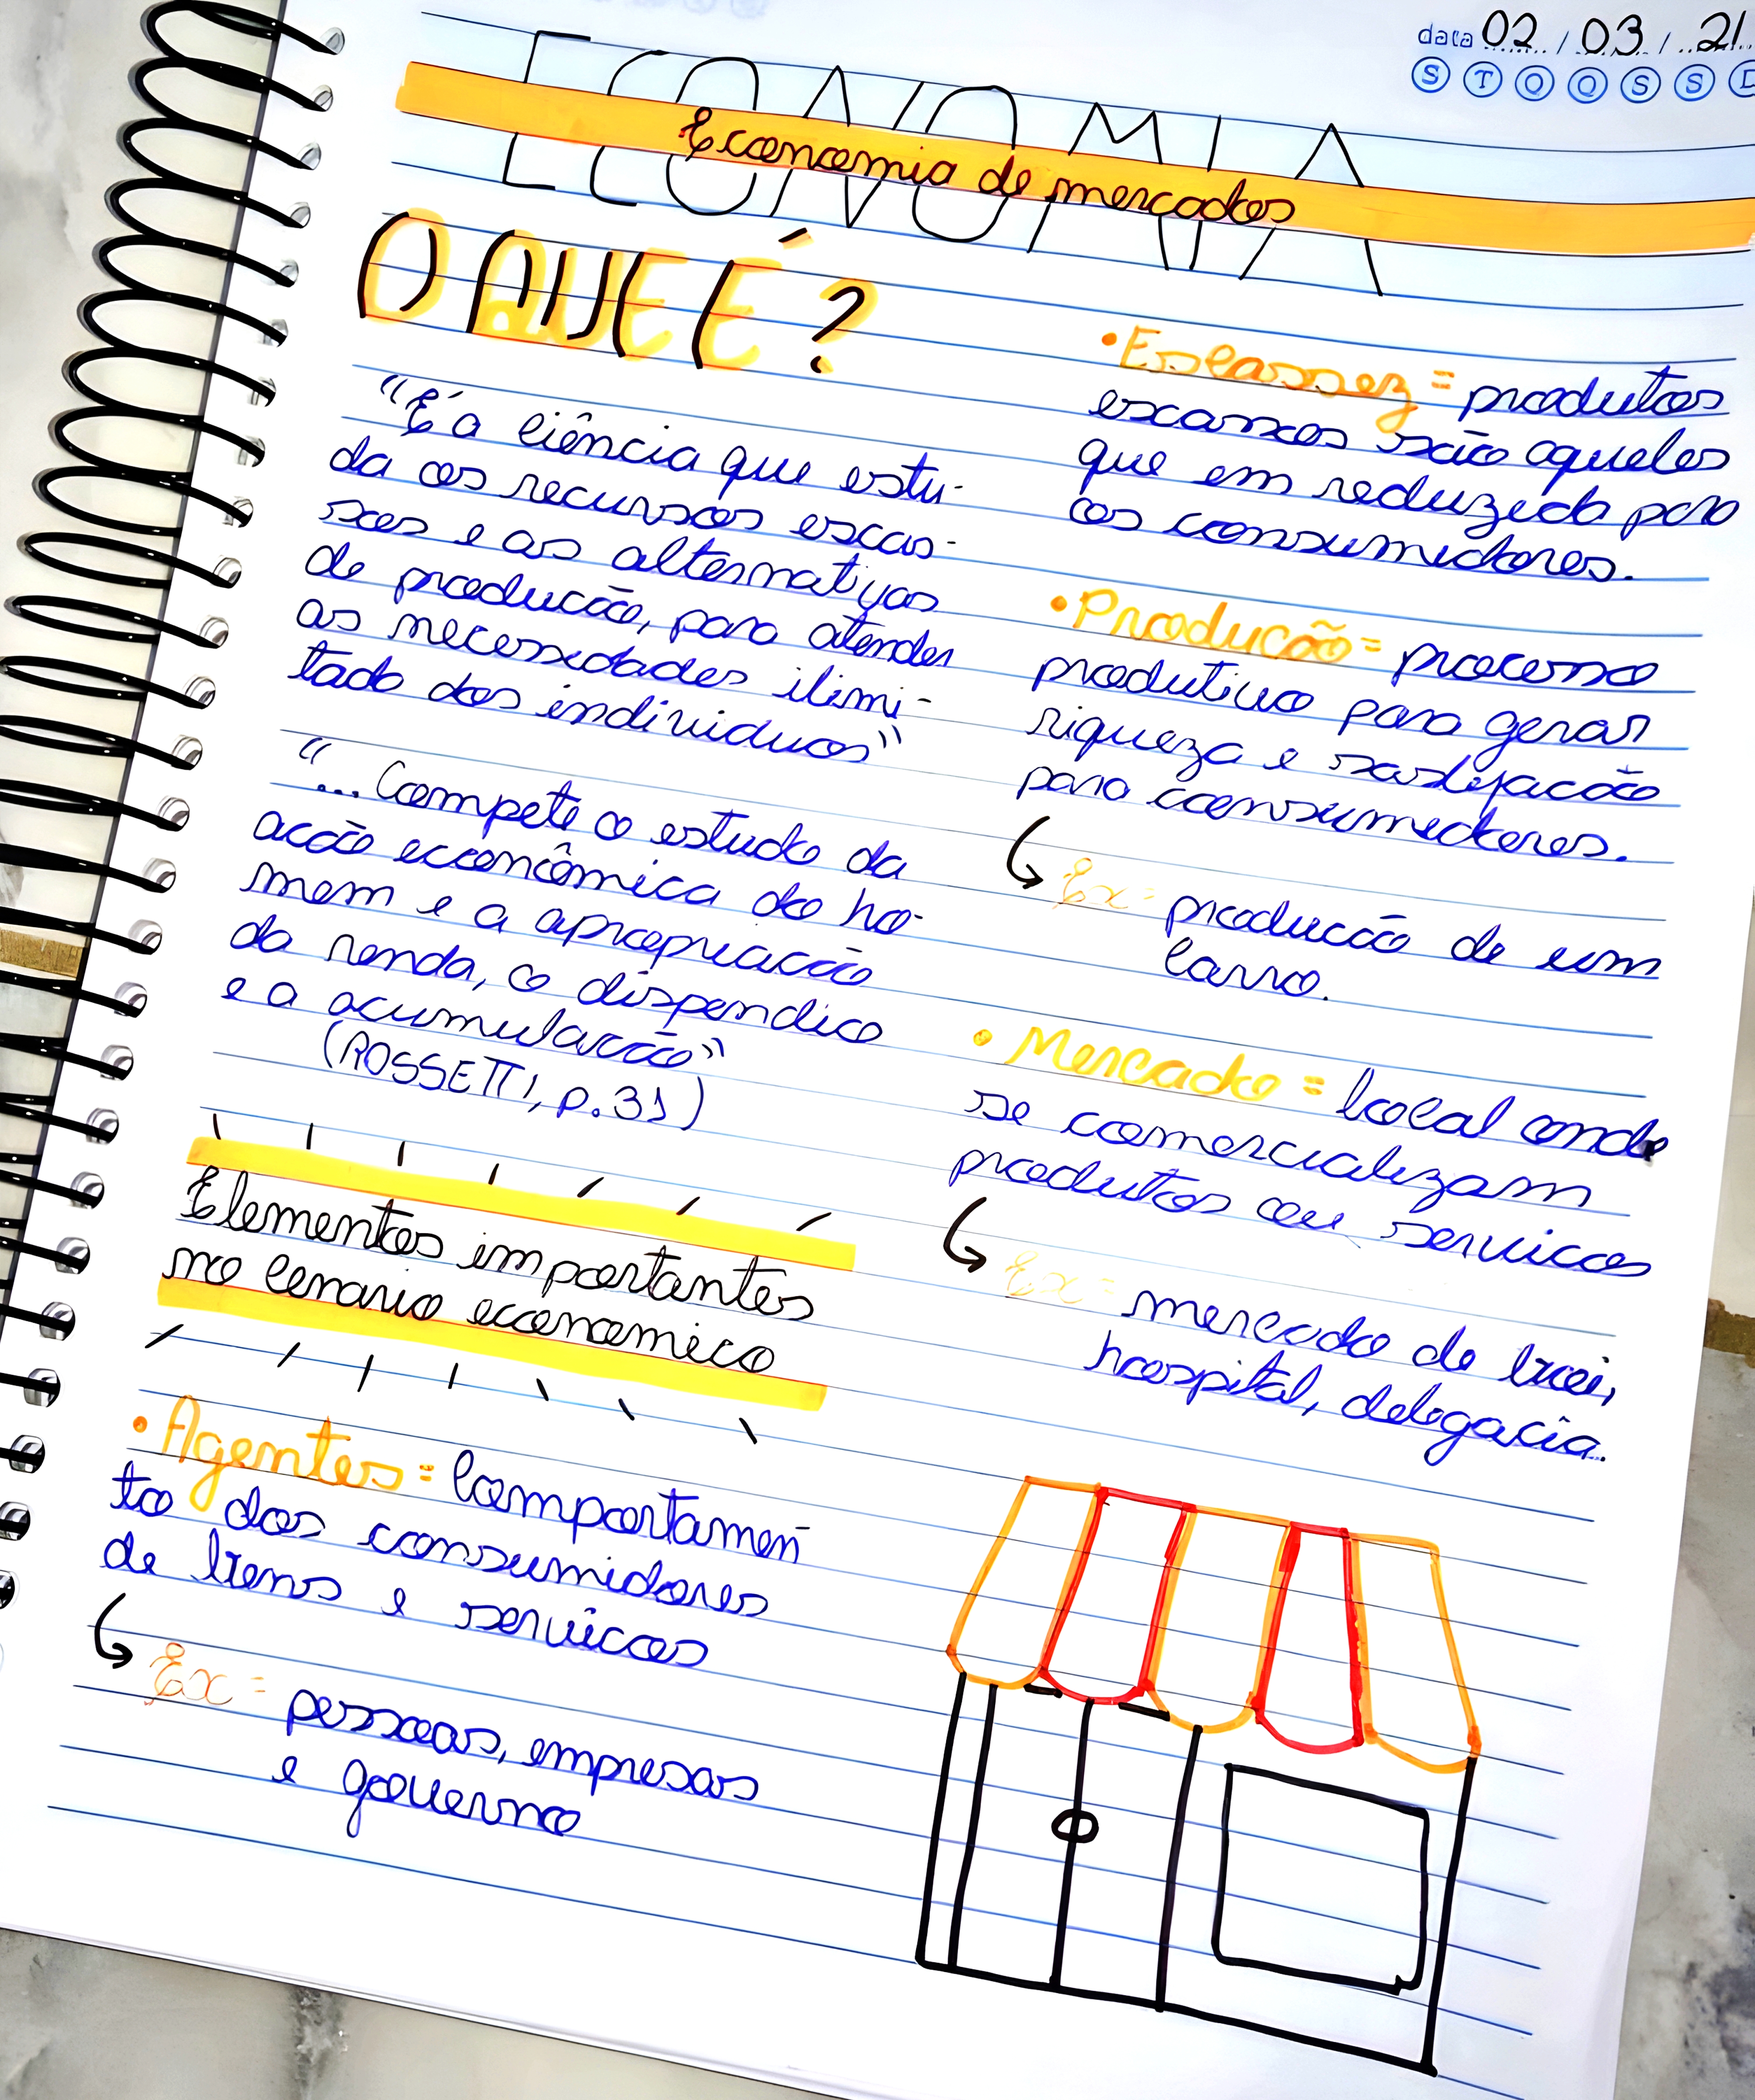 data 02 / 03 / 21
S T Q Q S S D
ECONOMIA
Economia de mercados
O QUE É?
"É a ciência que estu-
da os recursos escas-
sos e as alternativas
de producão, para atender
as necessidades ilimi-
tado dos individuos"
"... Compete o estudo da
acão econômica do ho-
mem e a apropriacão
da renda, o dispendico
e a acumulacão"
(ROSSETTI, p.31)
Elementos importantes
no cenario economico
• Agentes = Comportamen
to dos consumidores
de bens e servicos
Ex = pessoas, empresas
e governo
• Escassez = produtos
escassos são aqueles
que em reduzido para
os consumidores.
• Producão = processo
produtivo para gerar
riqueza e satisfacão
para consumidores.
Ex = producão de um
carro.
• Mercado = local onde
se comercializam
produtos ou servicos
Ex = mercado de boi,
hospital, delegacia.